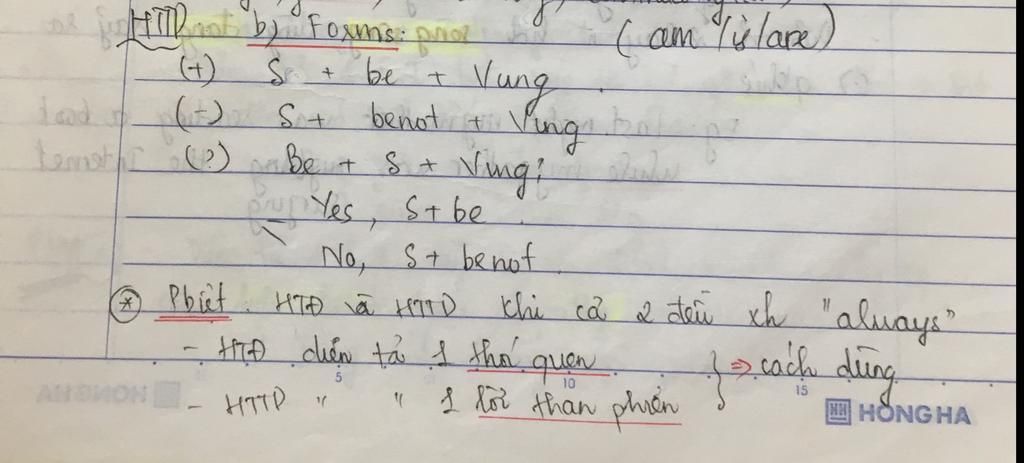 HTTD b) Forms: (am/is/are)
(+) S + be + Ving
(-) S + benot + Ving
(?) Be + S + Ving?
Yes, S + be
No, S + benot
* Pbiệt. HTĐ và HTTD khi cả 2 đều xh "always"
- HTĐ diễn tả 1 thói quen
- HTTD " " 1 lời than phiền } ⇒ cách dùng
5 10 15
HONG HA